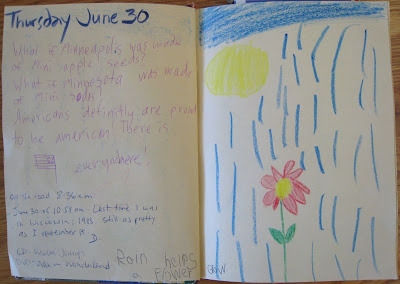 Thursday June 30
What if Minneapolis was made
of Mini apple seeds?
What if Mingesota was made
of Mini sodas?
Americans definitly are proud
to be american! There is
everywhere!
On the road 8:36 a.m.
June 30 at 10:58 am - Last time I was
in Wisconsin: 1985. Still as pretty
as I remember it.
D.
Rain helps
a Flower
Grow